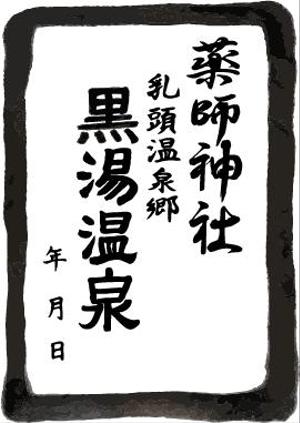 薬師神社
乳頭温泉郷
黒湯温泉
年 月 日